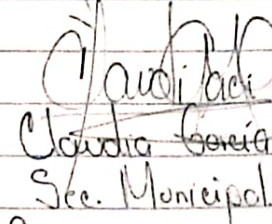 Claudia García
Sec. Municipal.